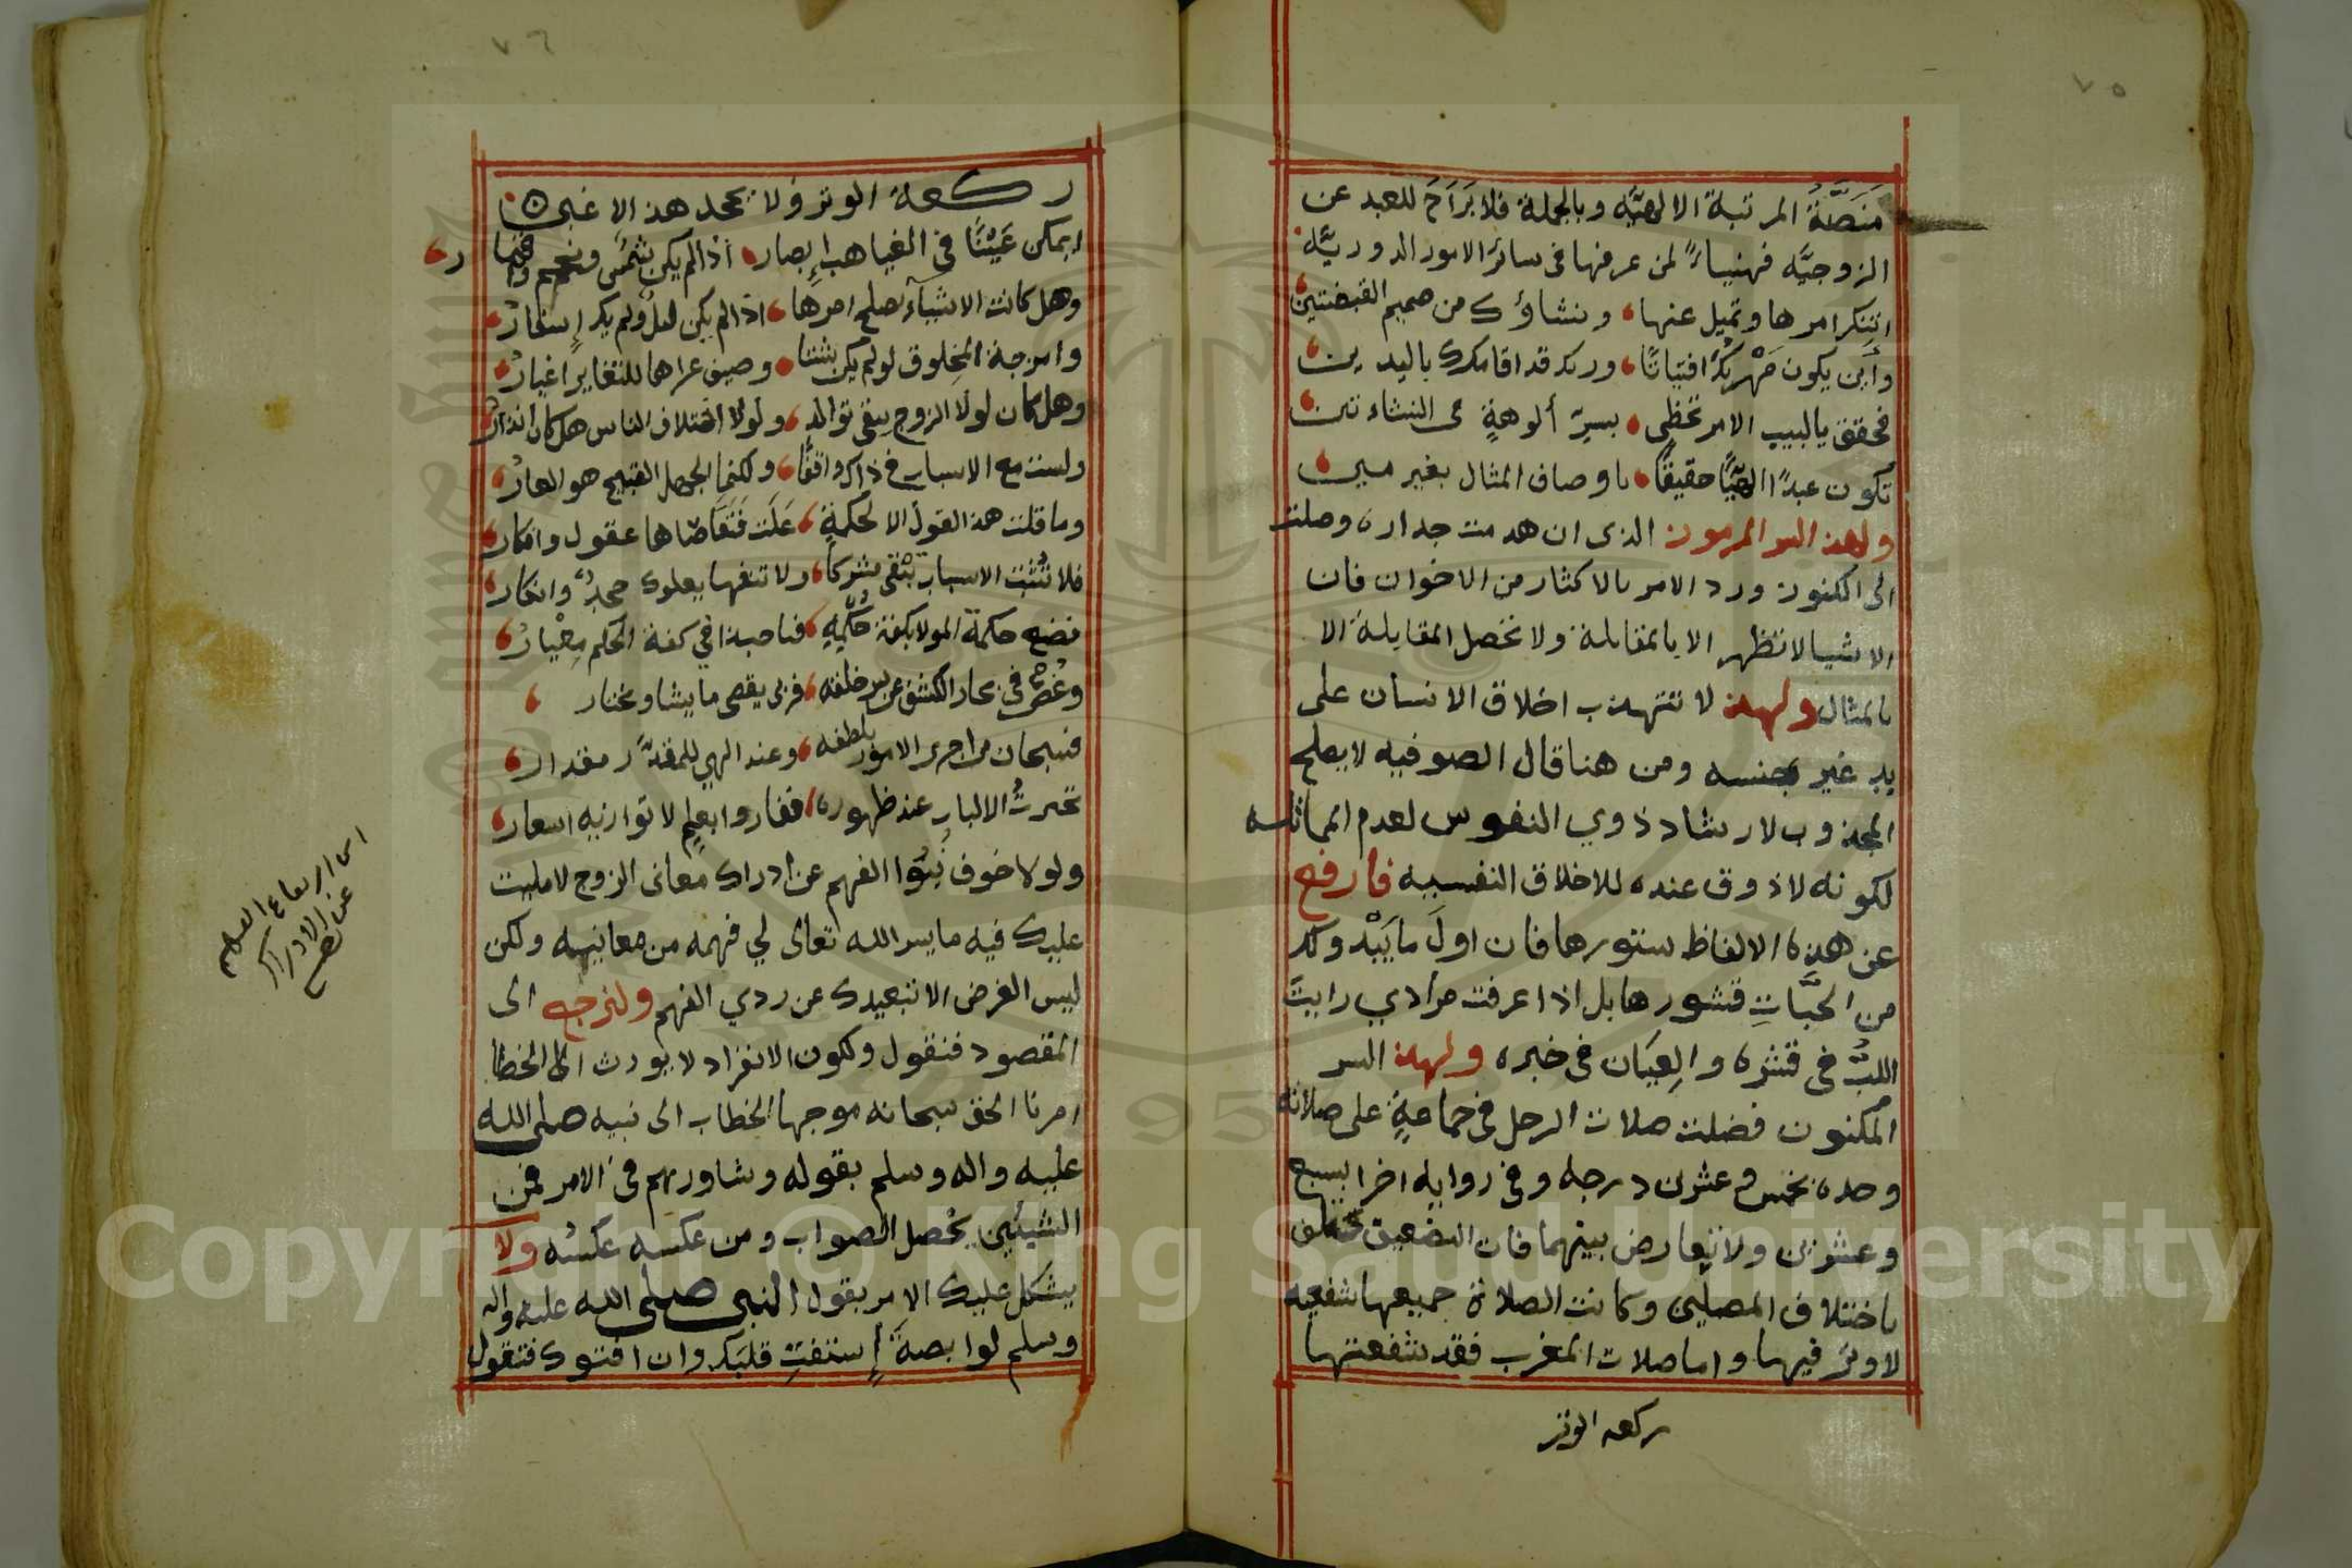 ٧٥
مَنَصَّةُ المرتبة الالهيَّه وبالجملة فلا بَرَاحَ للعبد عن
الزوجيَّه فهنيأً لمن عرفها فى سائر الامور الدوريَّه
اتنكر امرها وتميل عنها ، ومنشاؤك من صميم القبضتين
وأين يكون مَهْربُكَ افتياتًا ، وربك قد اقامك باليدين
فحقق يا لبيب الامر تحظى ، بسرّ ألوهةٍ فى النشاءتين
تكون عبدًا الهيًّا حقيقًا ، باوصاف المثال بغير مين
ولهذ السر المرموز الذى ان هدمت جداره وصلت
الى الكنوز ورد الامر بالاكثار من الاخوان فان
الاشيا لا تظهر الا بالمقابلة ولا تحصل المقابلة الا
بالمثال ولهذ لا تتهذب اخلاق الانسان على
يد غير جنسه ومن هنا قال الصوفيه لا يصلح
المجذوب لارشاد ذوي النفوس لعدم المماثله
لكونه لا ذوق عنده للاخلاق النفسيه فارفع
عن هذه الالفاظ ستورها فان اولَ ما يَبْدولك
من الحبَّاتِ قشورها بل اذا عرفت مرادي رايتَ
اللبَّ فى قشره والعِيَان فى خبره ولهذ السر
المكنون فضلت صلات الرجل فى جماعةٍ على صلاته
وحده بخمس وعشرن درجه وفى روايه اخرا بسبع
وعشرين ولا تعارض بينهما فان التضعيف مختلف
باختلاف المصلين وكانت الصلاة جميعها شفعيه
لا وترَ فيها واما صلات المغرب فقد شفعتها
ركعه الوتر
٧٦
ركعة الوتر ولا يجحد هذ الا غبى
ايمكن عَيْنًا فى الغياهب إبصار ، اذالم يكن شمس ونجم واقمار
وهل كانت الاشيآء يصلح امرها ، اذالم يكن ليلٌ ولم يك إسفارُ
وامزجة المخلوق لولم يكن شتا ، وصيف عراها للتغاير اغيارُ
وهل كان لولا الزوج يبقى توالدٌ ، ولولا اختلاف الناس هل كان انذارُ
ولست مع الاسباب فى ذاك واقفًا ، ولكنما الجهل القبيح هو العارُ
وما قلت هذ القول الا لحكمةٍ ، عَلَت فتقاضاها عقول وافكار
فلا تُثبت الاسباب تبْقى مشركًا ، ولا تنفها يعلوك جحدٌ وانكار
فضع حكمة المولا بكفة حُكْمِهِ ، فصاحبة افي كفة الحكم مِعْيارُ
وغُصْ فى بحار الكشف عن سر خلقه ، فربى يقضى ما يشا ويختار
فسبحان من اجرى الامور بلطفه ، وعند الهي للمقدَّر مقدار
تحيرتُ الالباب عند ظهوره ، ففازوا بعلمٍ لا توازيه اسعار
ولولا خوف نُبُوا الفهم عن ادراك معانى الزوج لامليت
عليك فيه ما يسر الله تعالى لي فهمه من معانيه ولكن
ليس الغرض الا تبعيدك عن ردي الفهم ولنرجع الى
المقصود فنقول ولكون الانفراد لا يورث الا الخطا
امرنا الحق سبحانه موجها الخطاب الى نبيه صلى الله
عليه واله وسلم بقوله وشاورهم فى الامر فمن
الشيئين يحصل الصواب ومن عكسه عكسُه ولا
يشكل عليك الامر بقول النبى صلى الله عليه واله
وسلم لوابصةَ إستفتِ قلبَك وان افتوك فتقول
عن الادراك
Copyright © King Saud University
1957